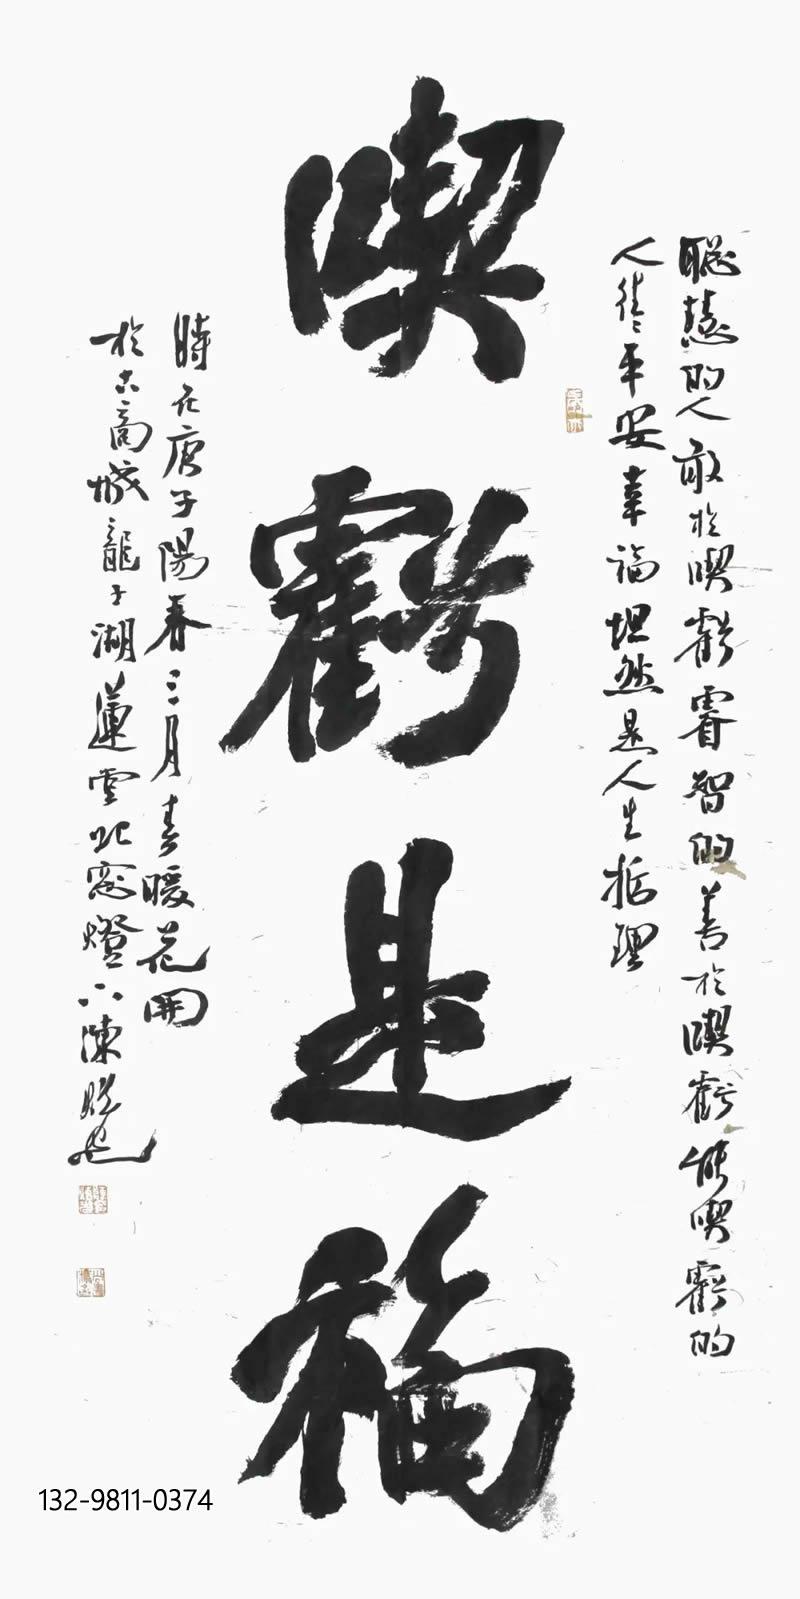 聰慧的人敢於喫虧睿智的善於喫虧能喫虧的
人往往平安幸福坦然是人生哲理
喫虧是福
時在庚子陽春三月春暖花開
於古商城龍子湖蓮北窓燈下陳
132-9811-0374